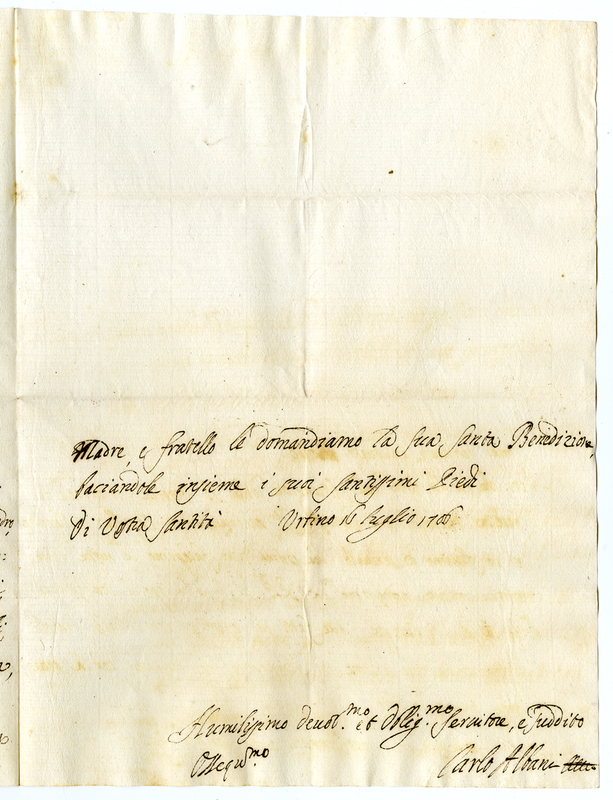 Madre, e fratello le domandiamo la sua santa Benedizione,
baciandole insieme i suoi santissimi Piedi
Di Vostra Santità Urbino 16 luglio 1706
Humilissimo devot.mo et Oblig.mo servitore, e suddito
Ossequ.mo Carlo Albani